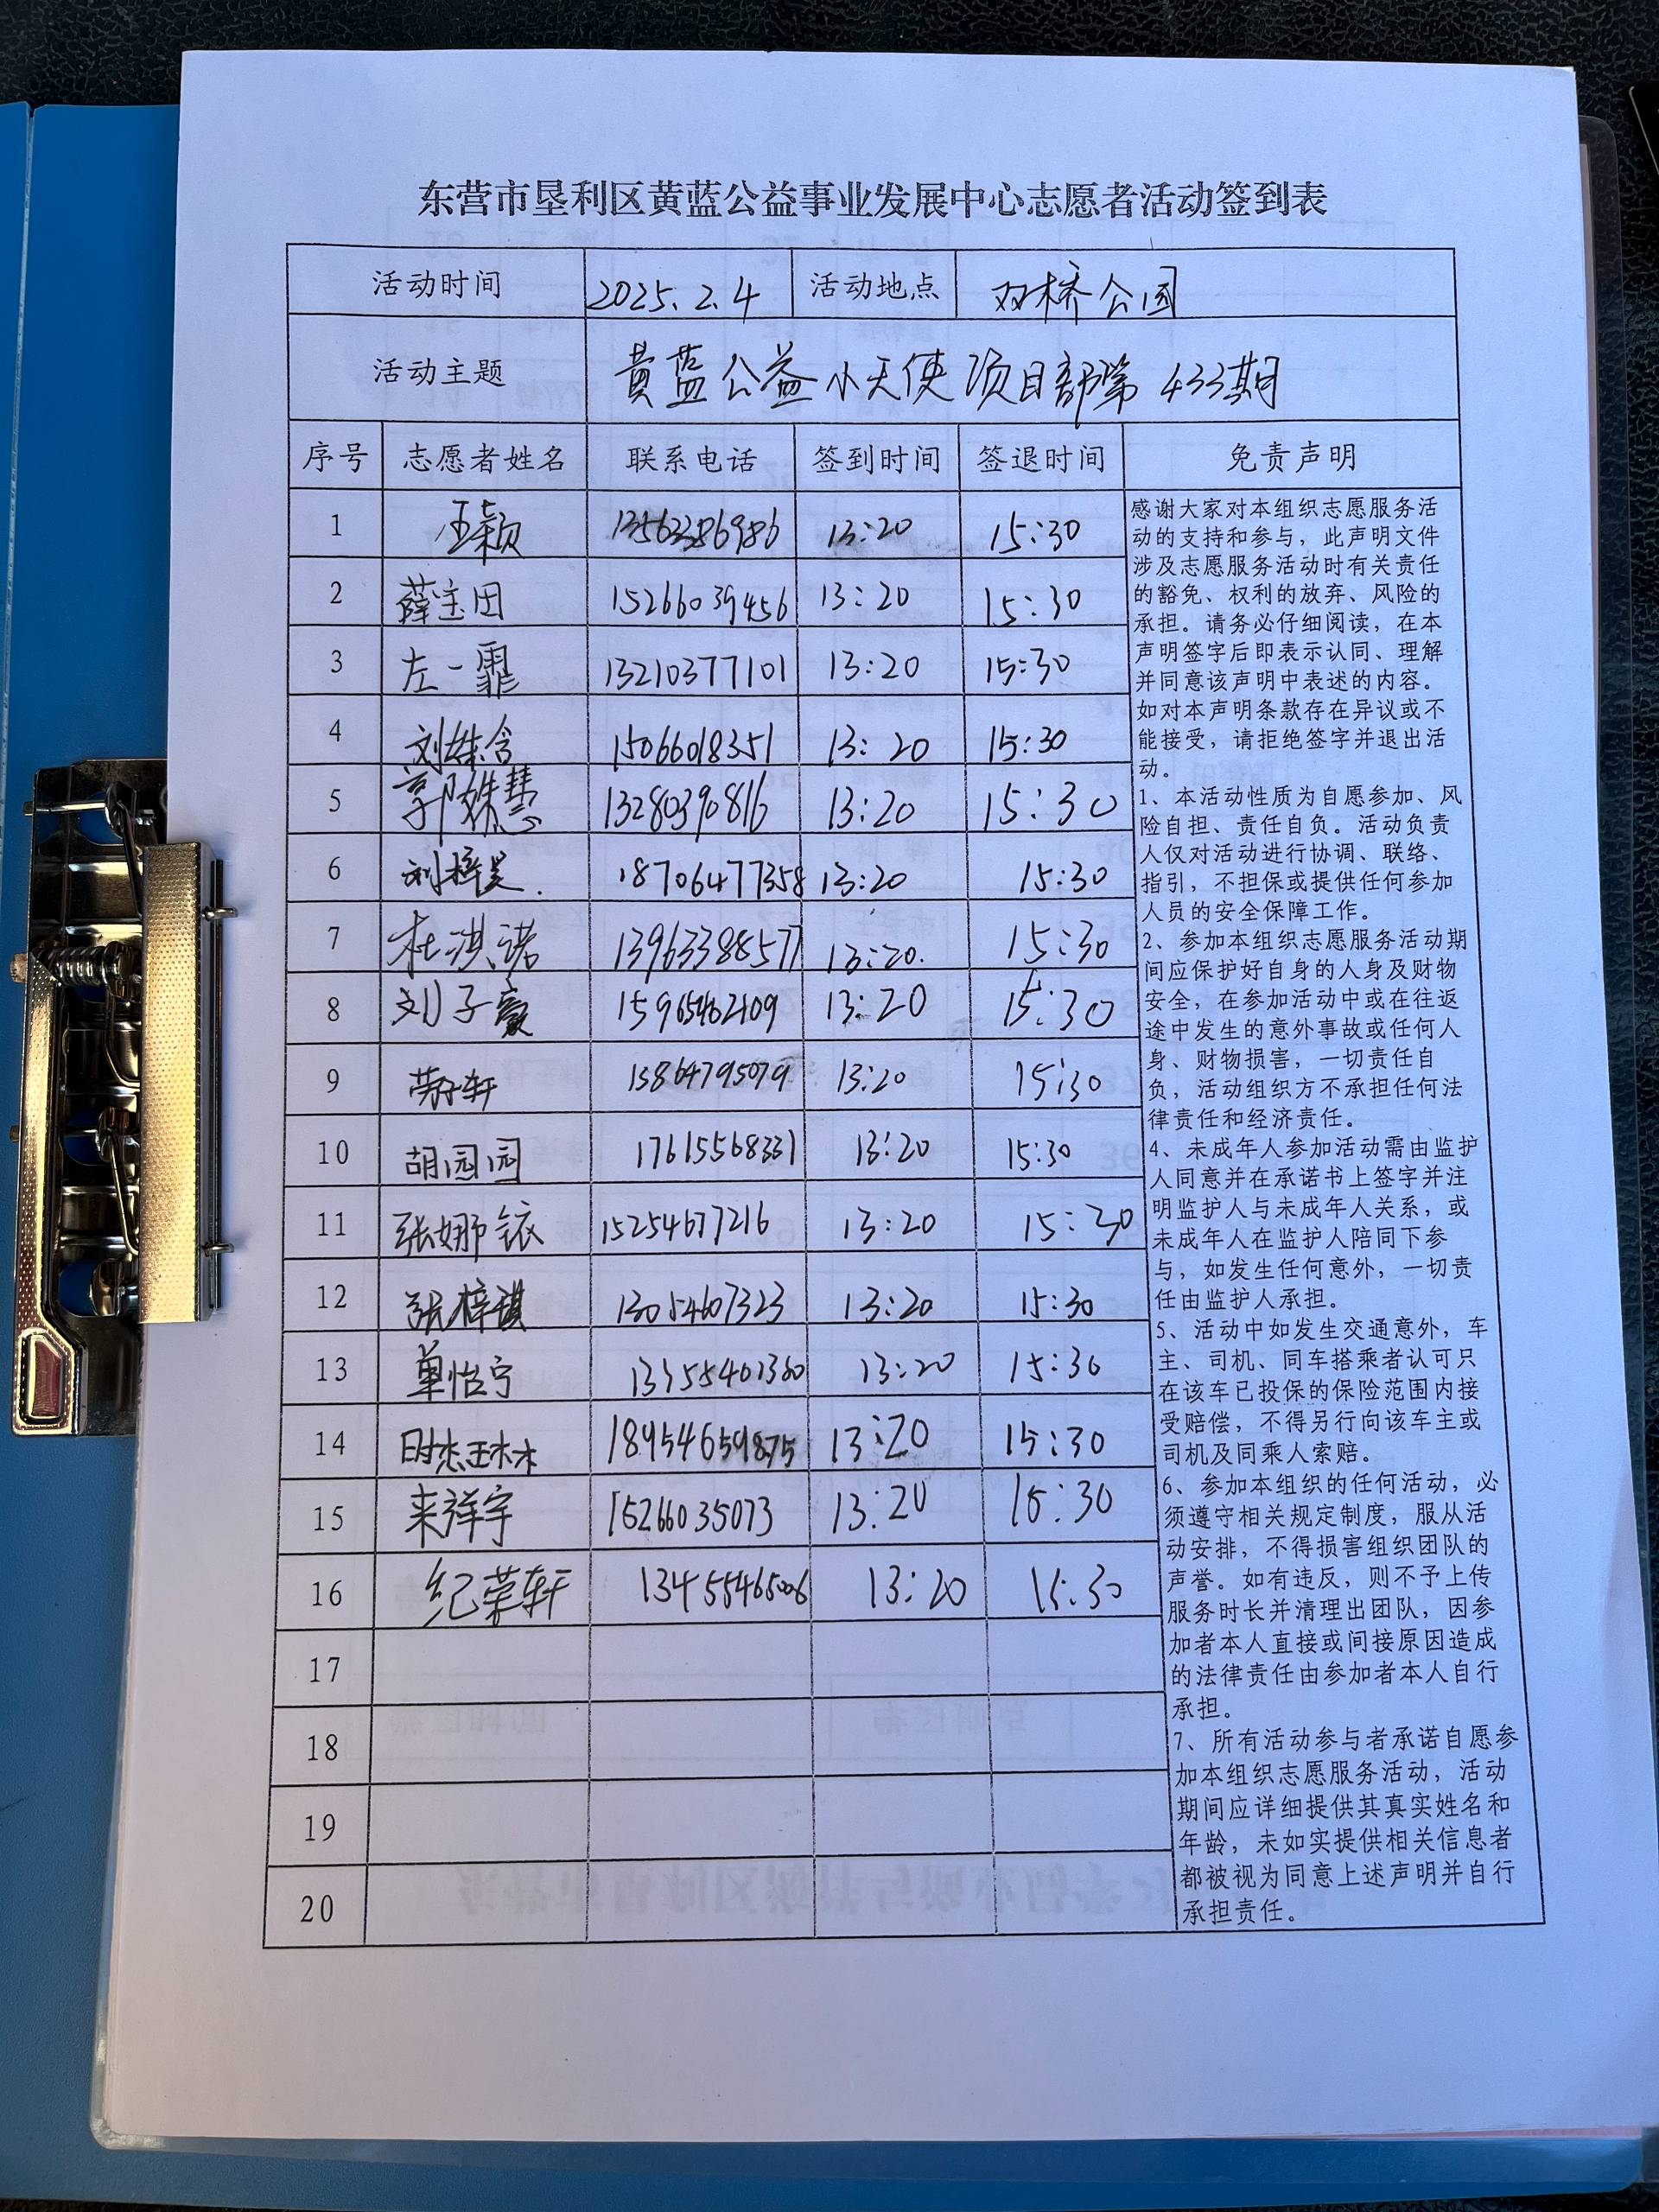 东营市垦利区黄蓝公益事业发展中心志愿者活动签到表
活动时间 2025.2.4 活动地点 双桥公园
活动主题 黄蓝公益小天使项目部第433期
序号 志愿者姓名 联系电话 签到时间 签退时间 免责声明
1 王颖 13:20 15:30
2 薛宝田 15266039456 13:20 15:30
3 左一霏 13210377101 13:20 15:30
4 15066018351 13:20 15:30
5 郭姝慧 13280390816 13:20 15:30
6 刘梓昊. 18706477358 13:20 15:30
7 杜淇诺 13963388577 13:20. 15:30
8 刘子豪 13:20 15:30
9 15864795079 13:20 15:30
10 胡园园 17615568331 13:20 15:30
11 张娜铱 15254677216 13:20 15:30
12 张梓琪 13054607323 13:20 15:30
13 单怡宁 13:20 15:30
14 18954659875 13:20 15:30
15 来祥宇 15266035073 13:20 15:30
16 纪荣轩 13455465006 13:20 15:30
17
18
19
20
感谢大家对本组织志愿服务活
动的支持和参与，此声明文件
涉及志愿服务活动时有关责任
的豁免、权利的放弃、风险的
承担。请务必仔细阅读，在本
声明签字后即表示认同、理解
并同意该声明中表述的内容。
如对本声明条款存在异议或不
能接受，请拒绝签字并退出活
动。
1、本活动性质为自愿参加、风
险自担、责任自负。活动负责
人仅对活动进行协调、联络、
指引，不担保或提供任何参加
人员的安全保障工作。
2、参加本组织志愿服务活动期
间应保护好自身的人身及财物
安全，在参加活动中或在往返
途中发生的意外事故或任何人
身、财物损害，一切责任自
负，活动组织方不承担任何法
律责任和经济责任。
4、未成年人参加活动需由监护
人同意并在承诺书上签字并注
明监护人与未成年人关系，或
未成年人在监护人陪同下参
与，如发生任何意外，一切责
任由监护人承担。
5、活动中如发生交通意外，车
主、司机、同车搭乘者认可只
在该车已投保的保险范围内接
受赔偿，不得另行向该车主或
司机及同乘人索赔。
6、参加本组织的任何活动，必
须遵守相关规定制度，服从活
动安排，不得损害组织团队的
声誉。如有违反，则不予上传
服务时长并清理出团队，因参
加者本人直接或间接原因造成
的法律责任由参加者本人自行
承担。
7、所有活动参与者承诺自愿参
加本组织志愿服务活动，活动
期间应详细提供其真实姓名和
年龄，未如实提供相关信息者
都被视为同意上述声明并自行
承担责任。